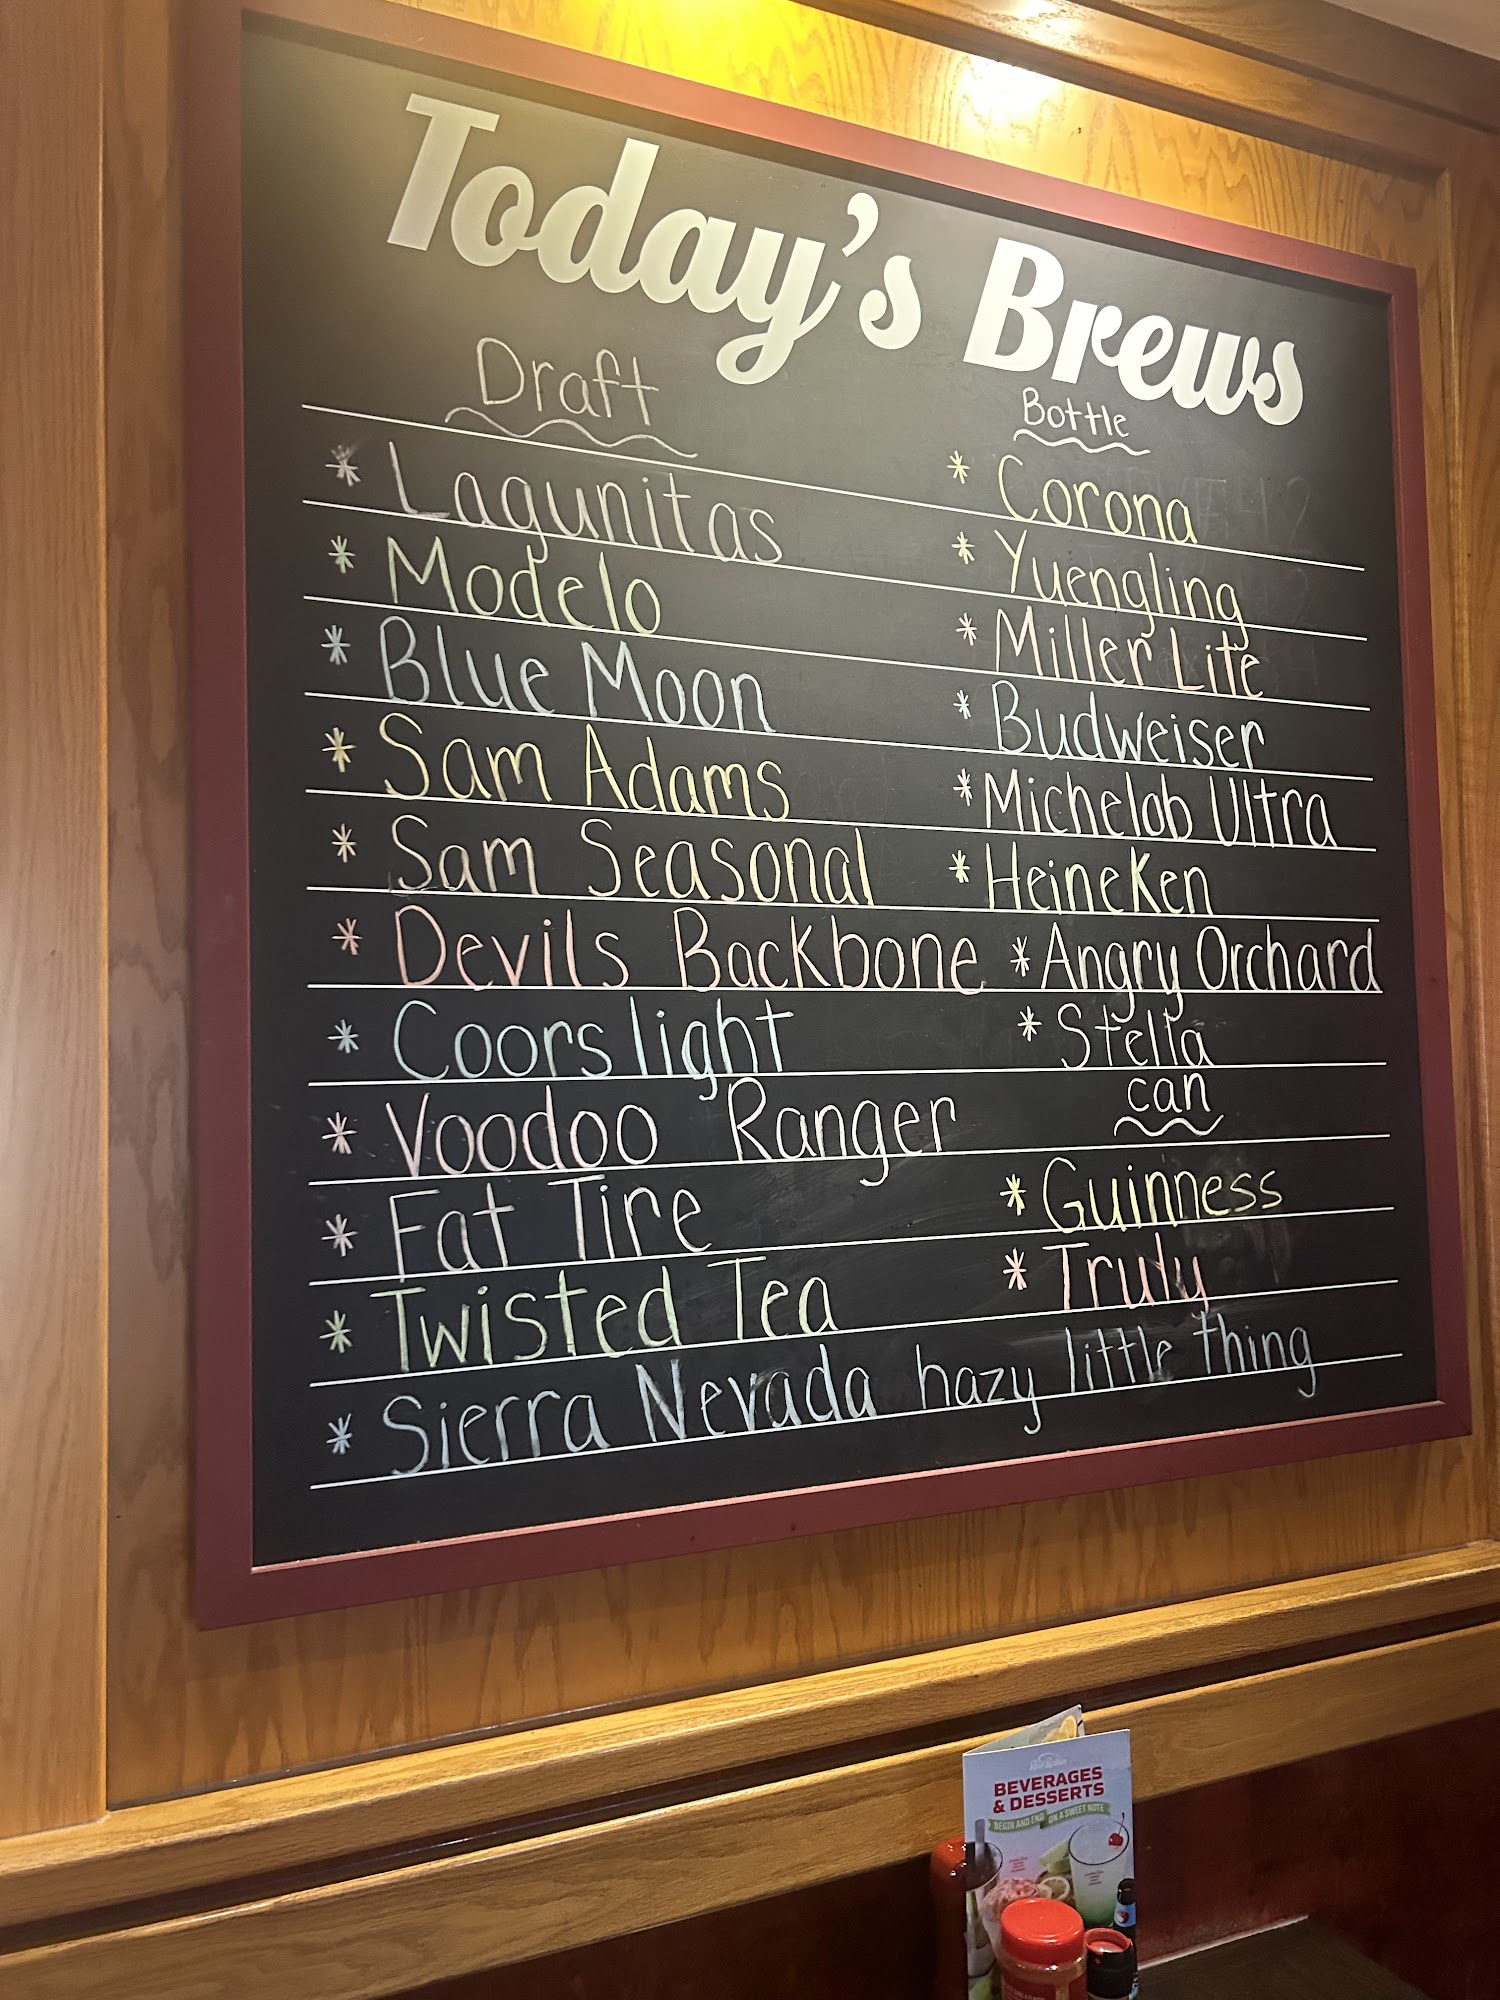 Today's Brews
Draft
* Lagunitas
* Modelo
* Blue Moon
* Sam Adams
* Sam Seasonal
* Devils Backbone
* Coors light
* Voodoo Ranger
* Fat Tire
* Twisted Tea
* Sierra Nevada hazy little thing
Bottle
* Corona
* Yuengling
* Miller Lite
* Budweiser
* Michelob Ultra
* Heineken
* Angry Orchard
* Stella
can
* Guinness
* Truly
BEVERAGES
& DESSERTS
BEGIN AND END ON A SWEET NOTE